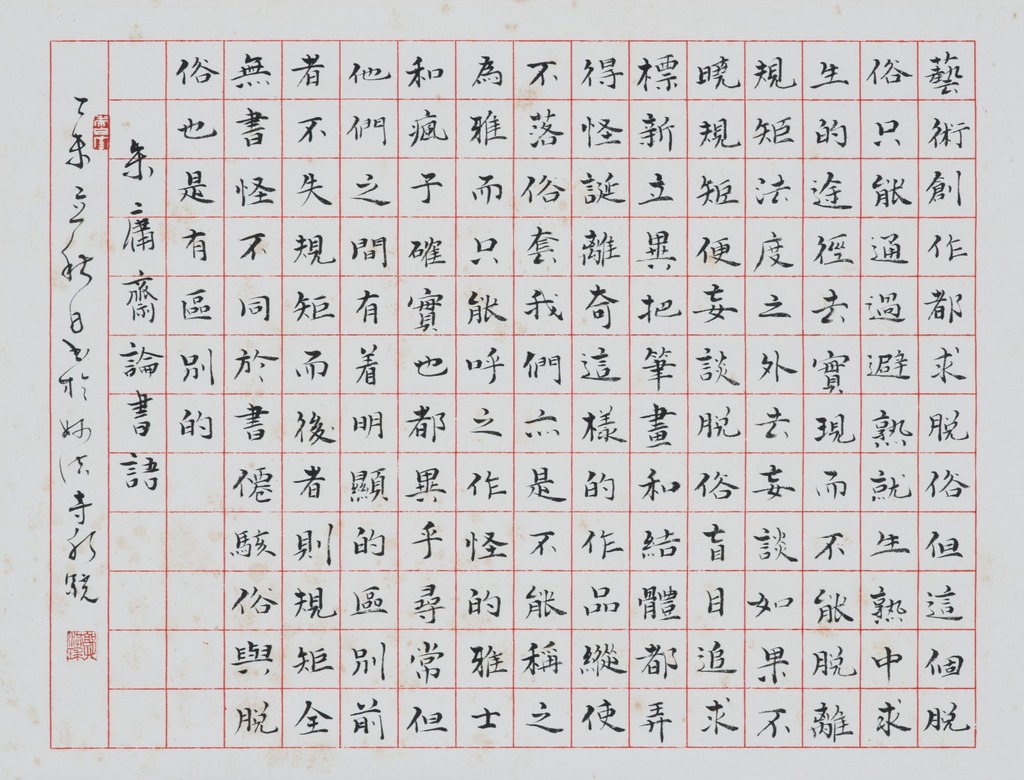 藝術創作都求脱俗但這個脱
俗只能通過避熟就生熟中求
生的途徑去實現而不能脱離
規矩法度之外去妄談如果不
曉規矩便妄談脱俗盲目追求
標新立異把筆畫和結體都弄
得怪誕離奇這樣的作品縱使
不落俗套我們亦是不能稱之
為雅而只能呼之作怪的雅士
和瘋子確實也都異乎尋常但
他們之間有着明顯的區別前
者不失規矩而後者則規矩全
無書怪不同於書僊駭俗與脱
俗也是有區別的
朱庸齋論書語
乙未立秋日書於妙法寺驍